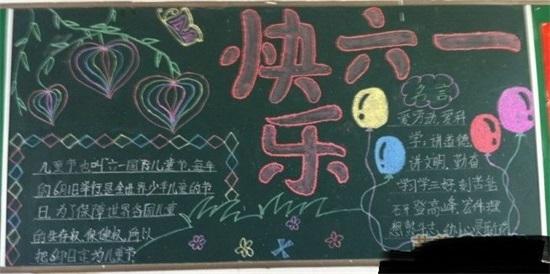 快六一
乐
儿童节也叫“六一国际儿童节,每年
的6月1日举行是全世界少年儿童的节
日,为了保障世界各国儿童
的生存权,保健权,所以
把6月1日定为儿童节
名言
爱方法,爱科
学,讲道德
讲文明,勤奋
学习学三好,刻苦
登高峰,宏伟理
想